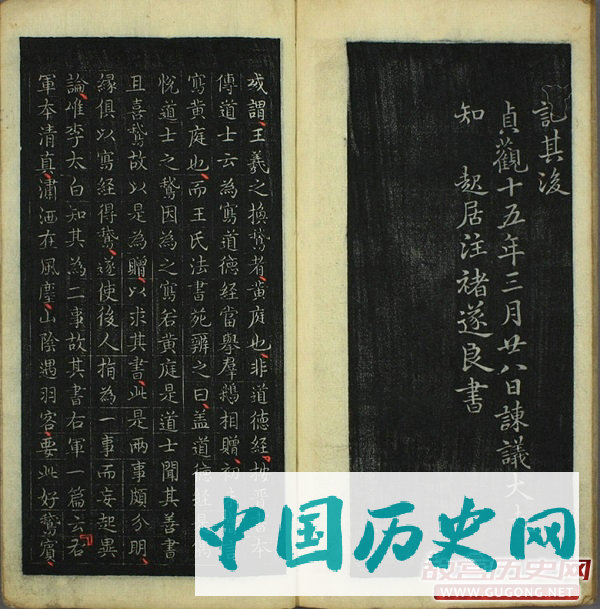 記其後
貞觀十五年三月廿八日諫議大
知 起居注褚遂良書
或謂王羲之換鵞者黃庭也非道德經按晉
本
傳道士云為寫道德經當舉羣鵝相贈初
寫黃庭也而王氏法書苑辨之曰盖道德經
悅道士之鵞因為之寫若黃庭是道士聞其善書
且喜鵞故以是為贈以求其書此是兩事頗分明
緣俱以寫經得鵞遂使後人指為一事而妄起異
論唯李太白知其為二事故其書右軍一篇云右
軍本清真瀟洒在風塵山陰遇羽客要此好鵞賓
中国历史网
故宫历史网
WWW.GUGONG.NET